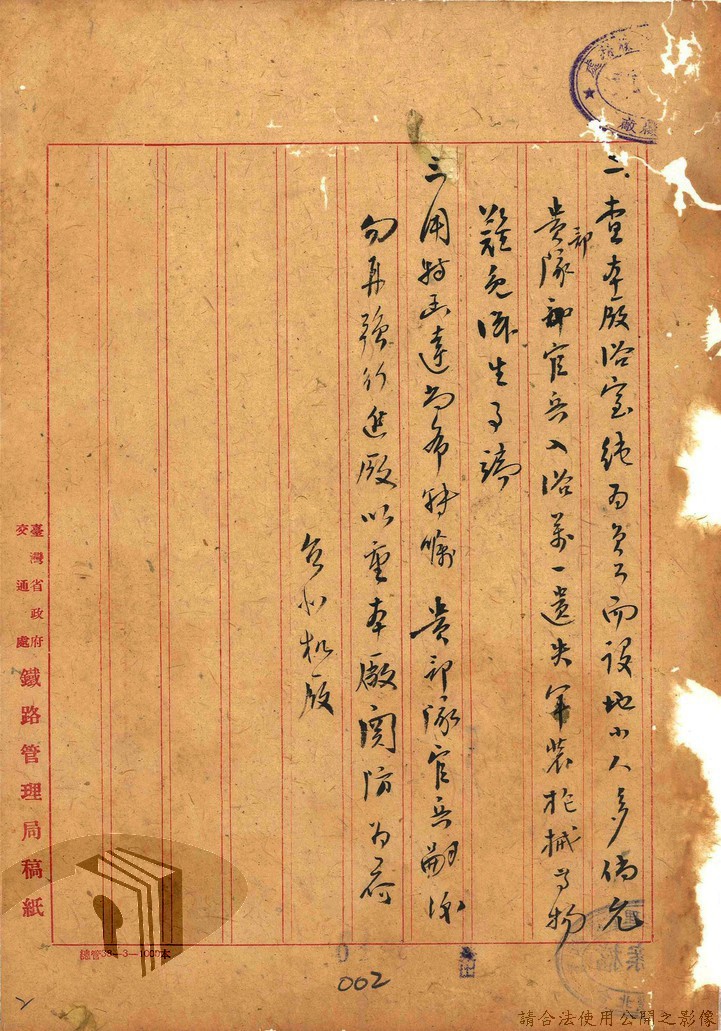 二、查本廠浴室純為員工而設地小人多倘允
貴部隊部官兵入浴萬一遺失軍裝槍械等物
難免滋生事端
三、用特函達尚希轉飭 貴部隊官兵嗣後
勿再強行進廠以重本廠關防為荷
台北机廠
臺灣省政府
交通處
鐵路管理局稿紙
總管39—3—1000本
002
請合法使用公開之影像